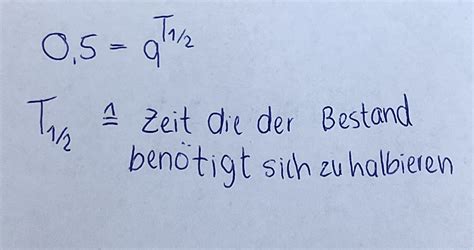 0,5 = q^T1/2
T1/2 ≙ Zeit die der Bestand
benötigt sich zu halbieren